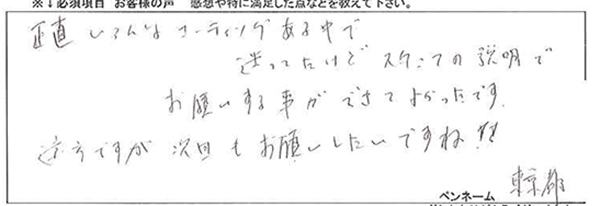 ※↓必須項目 お客様の声 感想や特に満足した点などを教えて下さい。
正直 いろんなコーティングある中で
迷ってたけど スタッフの説明で
お願いする事ができてよかったです
遠方ですが 次回もお願いしたいですね!!
ペンネーム 東京都